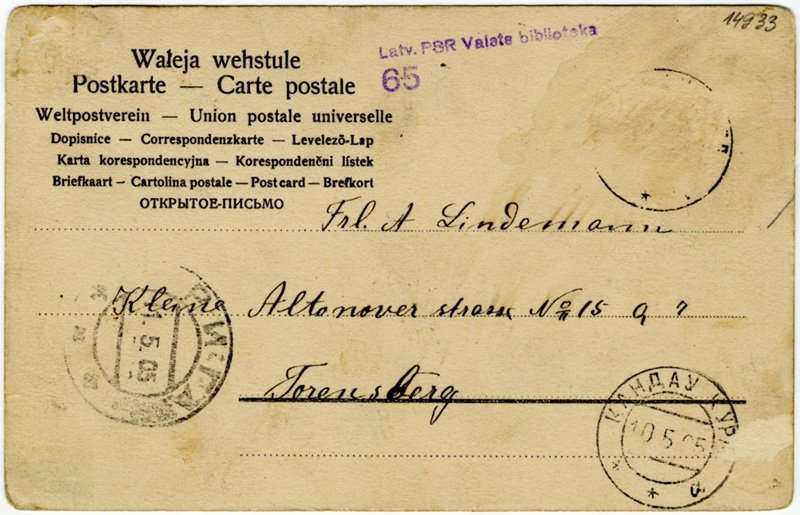 14933
Latv. PSR Valsts biblioteka
65
Waleja wehstule
Postkarte — Carte postale
Weltpostverein — Union postale universelle
Dopisnice — Correspondenzkarte — Levelező-Lap
Karta korespondencyjna — Korespondenčni lístek
Briefkaart — Cartolina postale — Post card — Brefkort
ОТКРЫТОЕ-ПИСЬМО
Frl. A Lindemann
Kleine Altonover strasse No 15 Q 7
Torensberg
РИГА
1.5.05
КАНДАУ КУРЛ
10.5.05